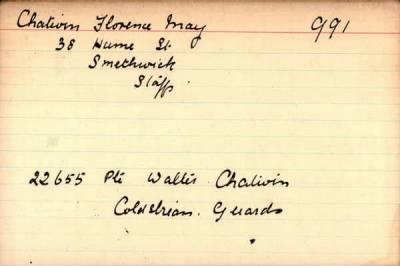 Chatwin Florence May 991
38 Hume St.
Smethwick
Staffs
22655 Pte Walter Chatwin
Coldstream Guards